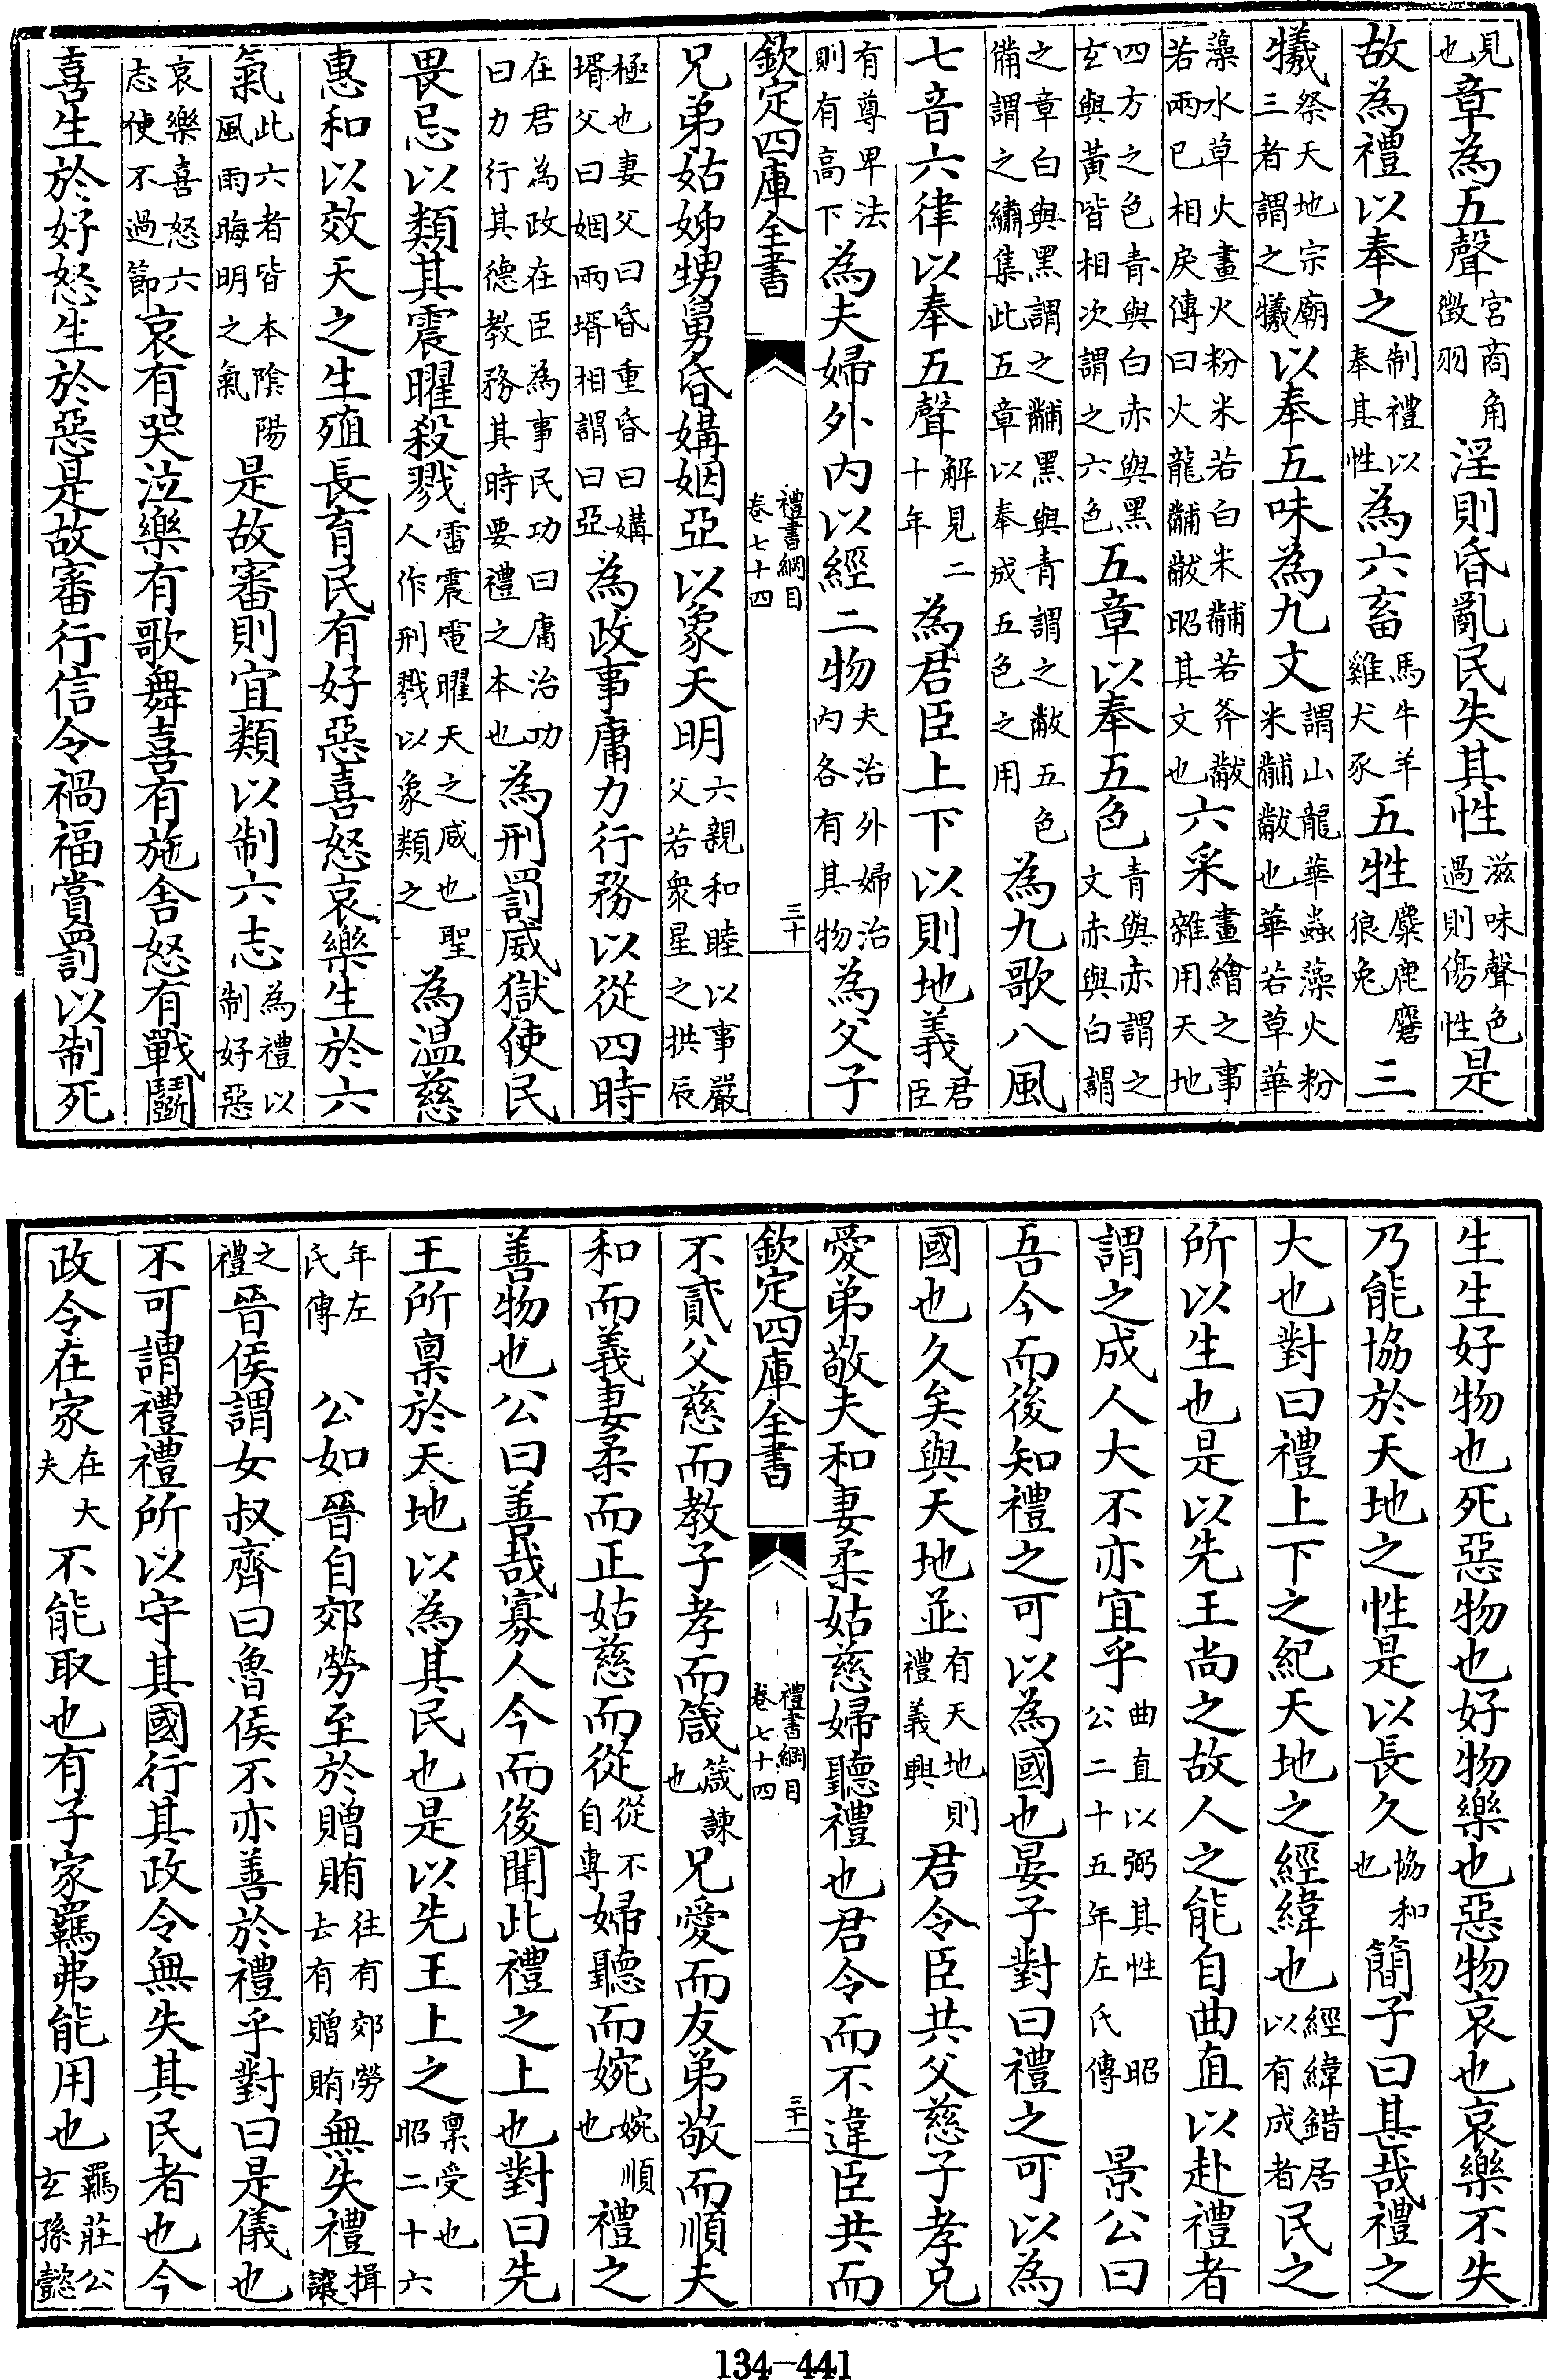 見也章為五聲宮商角徴羽淫則昏亂民失其性滋味聲色過則傷性是
故為禮以奉之制禮以奉其性為六畜馬牛羊雞犬豕五牲麋鹿麏狼兔三
犧祭天地宗廟三者謂之犧以奉五味為九文謂山龍華蟲藻火粉米黼黻也華若草華
藻水草火畫火粉米若白米黼若斧黻若兩已相戾傳曰火龍黼黻昭其文也六采畫繪之事雜用天地
四方之色青與白赤與黑玄與黃皆相次謂之六色五章以奉五色青與赤謂之文赤與白謂
之章白與黑謂之黼黑與青謂之黻五色備謂之繡集此五章以奉成五色之用為九歌八風
七音六律以奉五聲解見二十年為君臣上下以則地義君臣
有尊卑法則有高下為夫婦外内以經二物夫治外婦治内各有其物為父子
欽定四庫全書 禮書綱目卷七十四 三十
兄弟姑姊甥舅昏媾姻亞以象天明六親和睦以事嚴父若衆星之拱辰
極也妻父曰昏重昏曰媾壻父曰姻兩壻相謂曰亞為政事庸力行務以從四時
在君為政在臣為事民功曰庸治功曰力行其德教務其時要禮之本也為刑罰威獄使民
畏忌以類其震曜殺戮雷震電曜天之威也聖人作刑戮以象類之為温慈
惠和以效天之生殖長育民有好惡喜怒哀樂生於六
氣此六者皆本陰陽風雨晦明之氣是故審則宜類以制六志為禮以制好惡
哀樂喜怒六志使不過節哀有哭泣樂有歌舞喜有施舍怒有戰鬭
喜生於好怒生於惡是故審行信令禍福賞罰以制死
生生好物也死惡物也好物樂也惡物哀也哀樂不失
乃能協於天地之性是以長久協和也簡子曰甚哉禮之
大也對曰禮上下之紀天地之經緯也經緯錯居以有成者民之
所以生也是以先王尚之故人之能自曲直以赴禮者
謂之成人大不亦宜乎曲直以弼其性昭公二十五年左氏傳景公曰
吾今而後知禮之可以為國也晏子對曰禮之可以為
國也久矣與天地並有天地則禮義興君令臣共父慈子孝兄
愛弟敬夫和妻柔姑慈婦聽禮也君令而不違臣共而
欽定四庫全書 禮書綱目卷七十四 三十一
不貳父慈而教子孝而箴箴諫也兄愛而友弟敬而順夫
和而義妻柔而正姑慈而從從不自專婦聽而婉婉順也禮之
善物也公曰善哉寡人今而後聞此禮之上也對曰先
王所稟於天地以為其民也是以先王上之稟受也昭二十六
年左氏傳 公如晉自郊勞至於贈賄往有郊勞去有贈賄無失禮揖讓
之禮晉侯謂女叔齊曰魯侯不亦善於禮乎對曰是儀也
不可謂禮禮所以守其國行其政令無失其民者也今
政令在家在大夫不能取也有子家羈弗能用也羈莊公玄孫懿
134-441